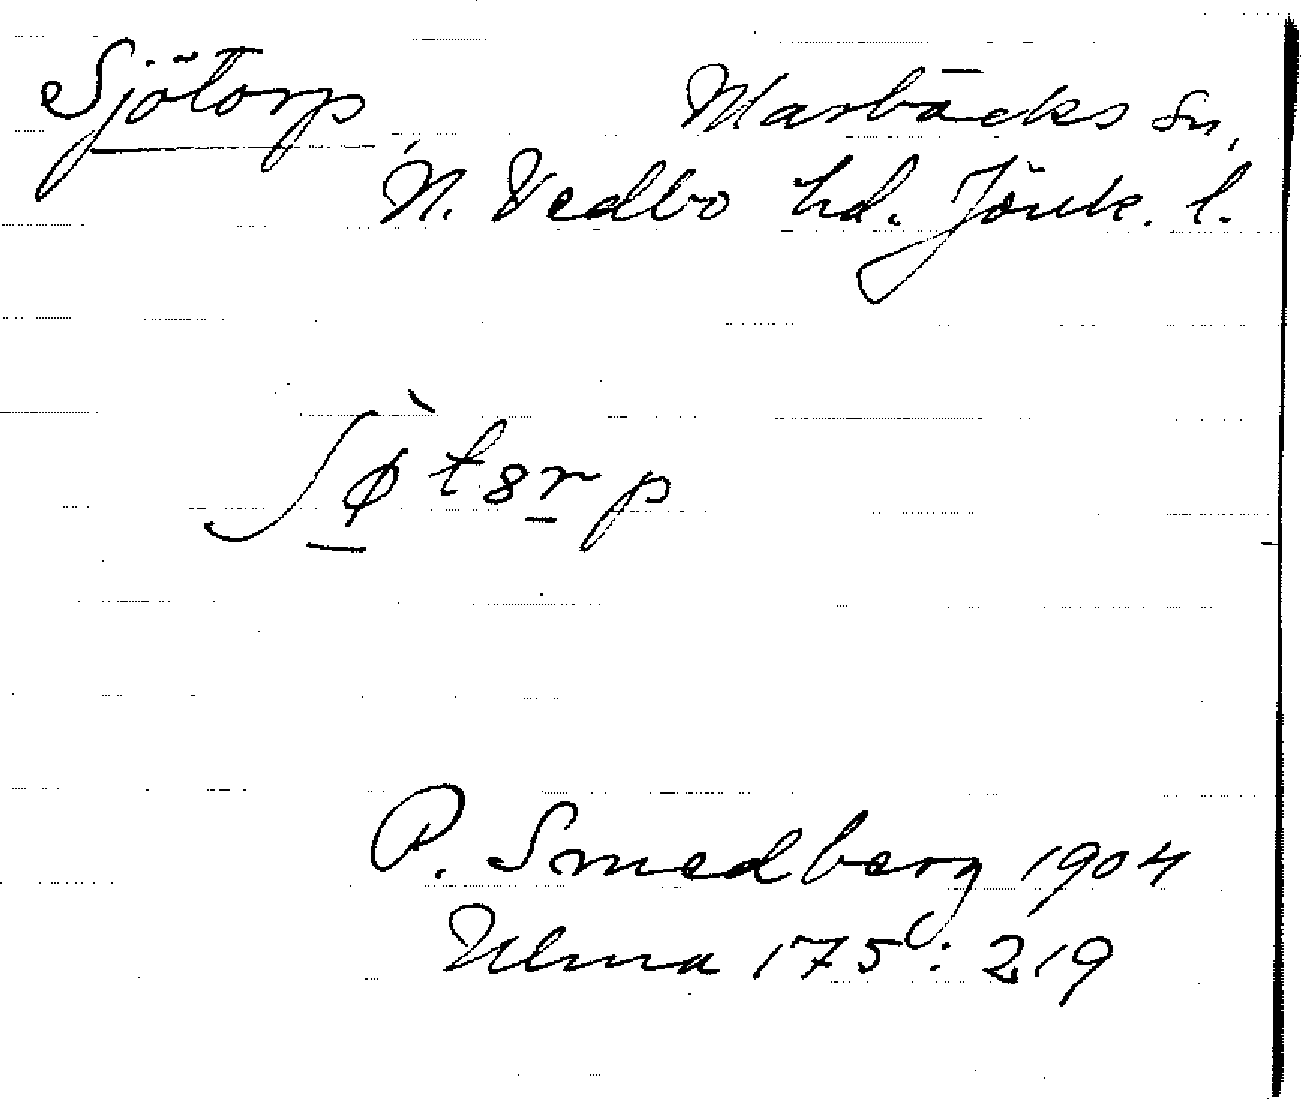 Sjötorp, Marbäcks sn,
N. Vedbo hd. Jönk. l.
ʃø̀t8rp
P. Smedberg 1904
Ulma 175: 219